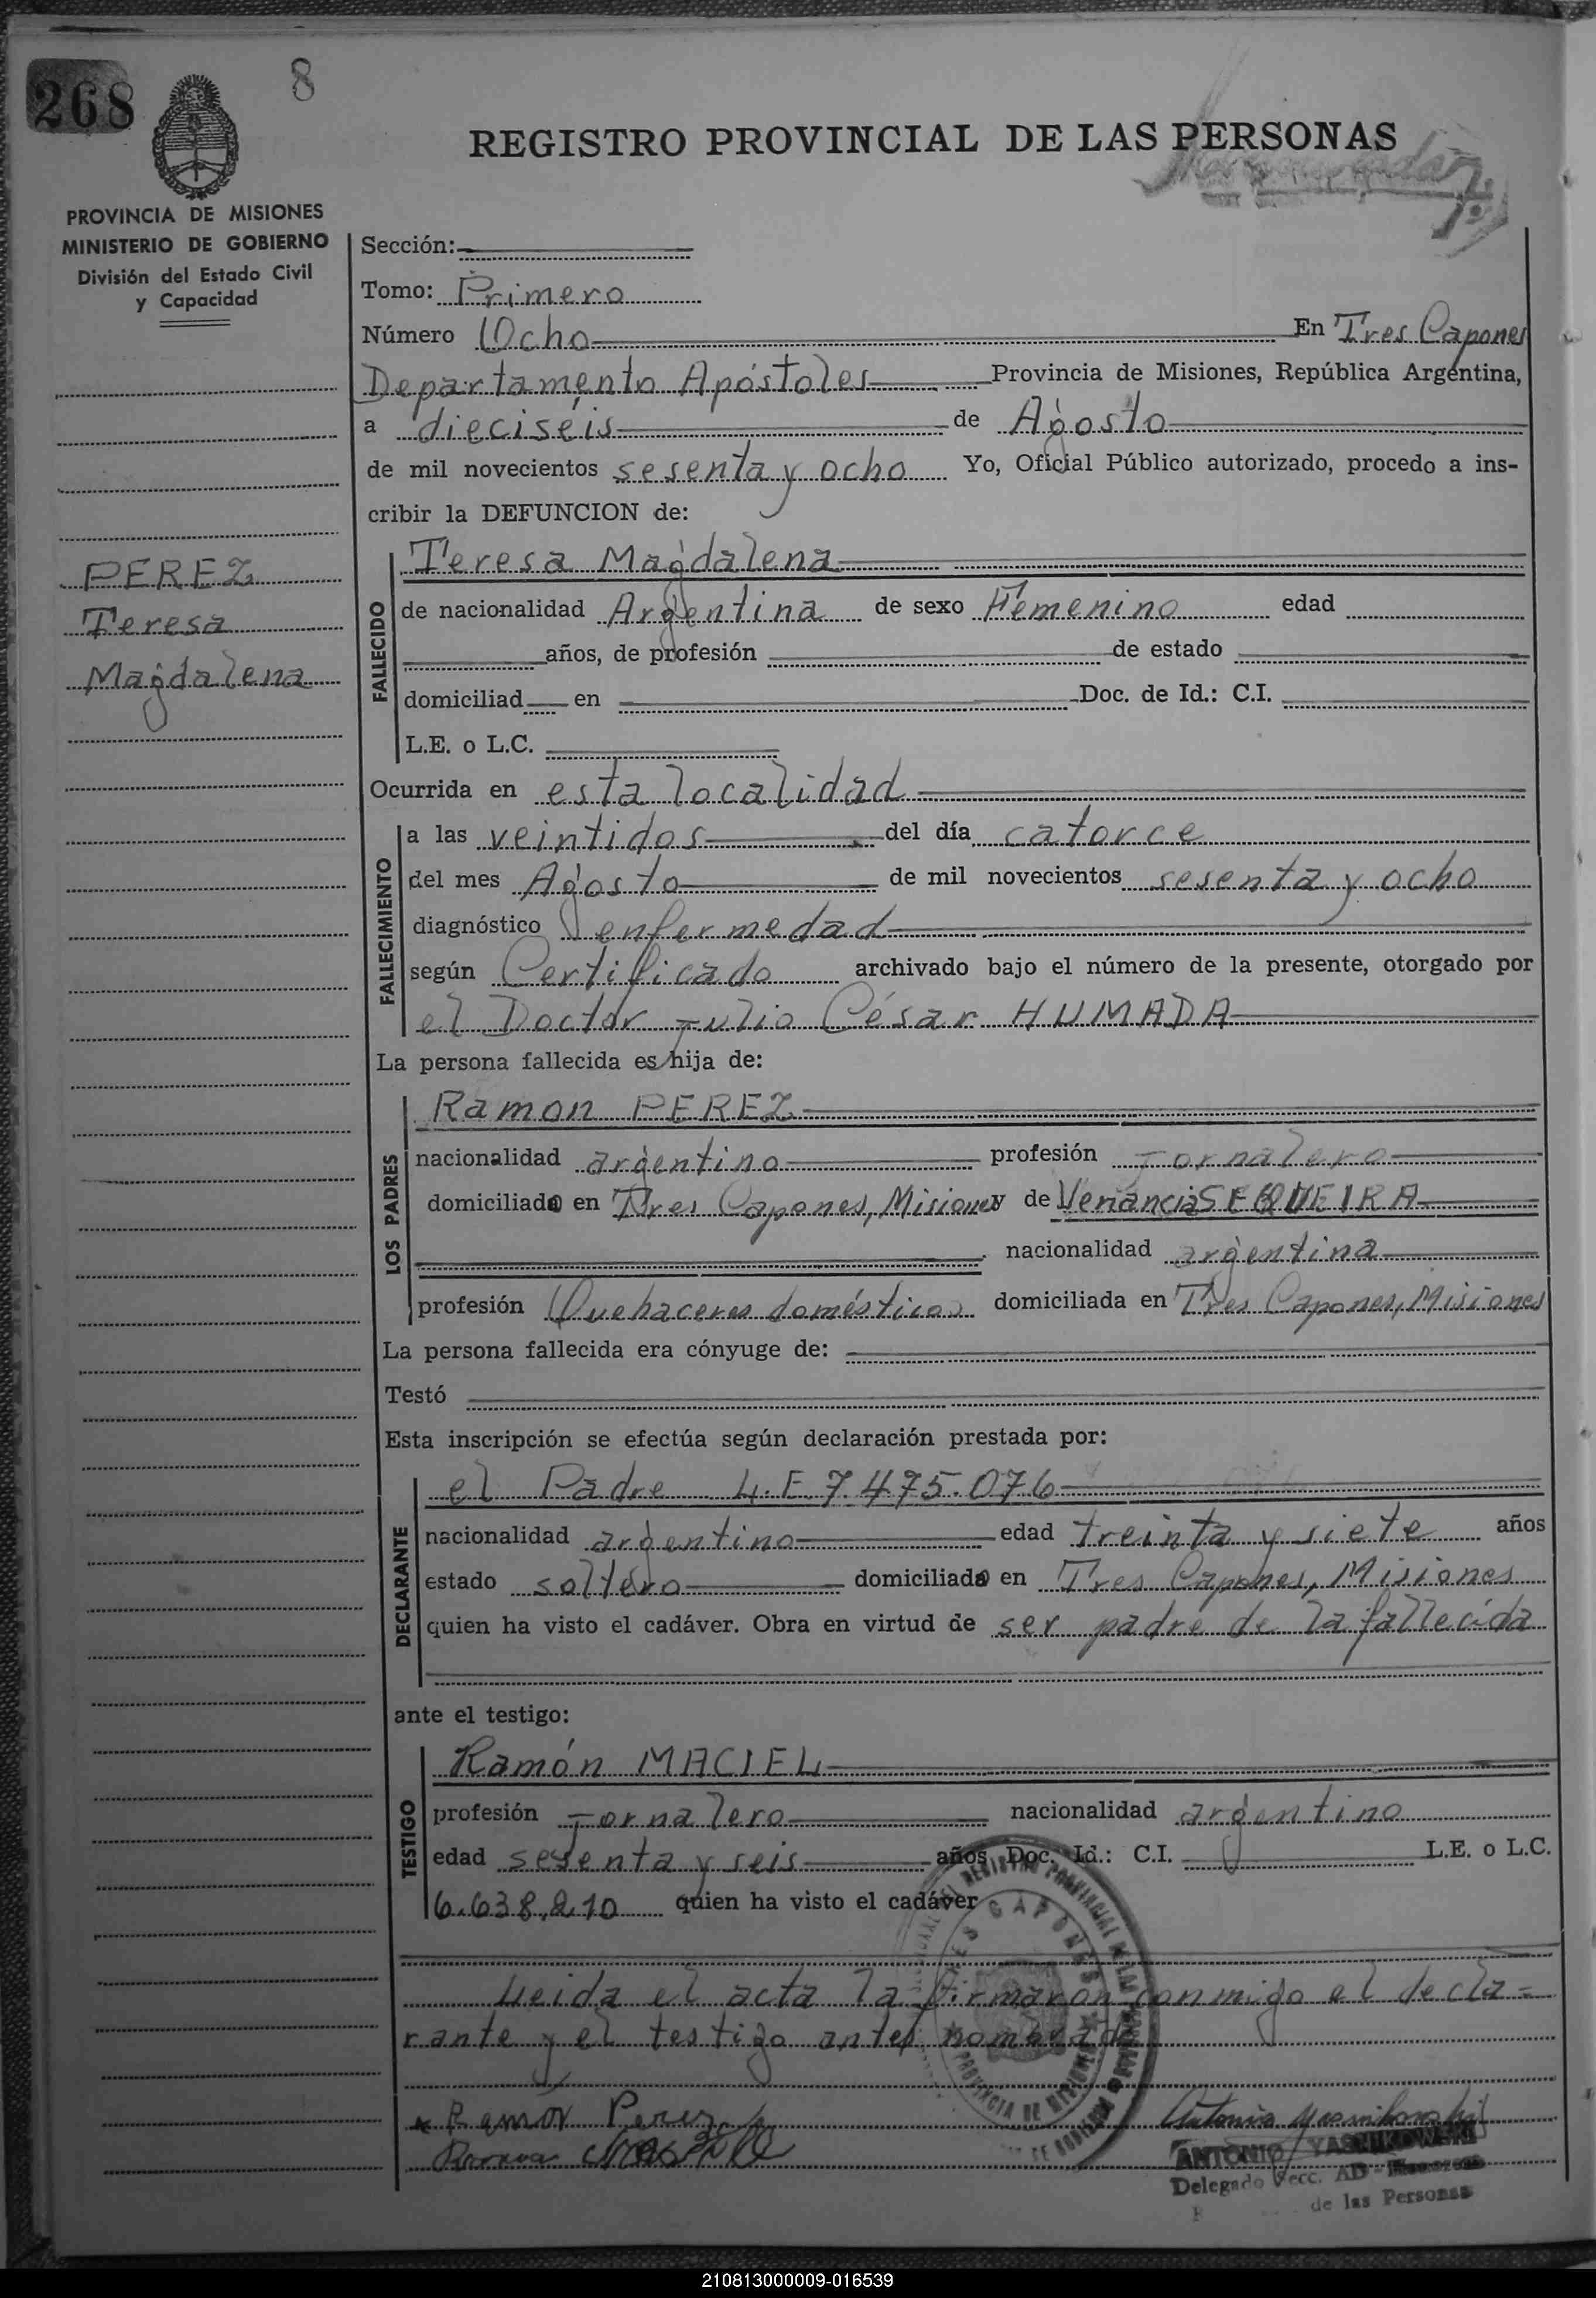 268
8
REGISTRO PROVINCIAL DE LAS PERSONAS
PROVINCIA DE MISIONES
MINISTERIO DE GOBIERNO
División del Estado Civil
y Capacidad
PEREZ
Teresa
Magdalena
Sección:
Tomo: Primero
Número Ocho En Tres Capones
Departamento Apóstoles Provincia de Misiones, República Argentina,
a dieciséis de Agosto
de mil novecientos sesenta y ocho Yo, Oficial Público autorizado, procedo a ins-
cribir la DEFUNCION de:
FALLECIDO
Teresa Magdalena
de nacionalidad Argentina de sexo Femenino edad
años, de profesión de estado
domiciliad en Doc. de Id.: C.I.
L.E. o L.C.
Ocurrida en esta localidad
FALLECIMIENTO
a las veintidos del día catorce
del mes Agosto de mil novecientos sesenta y ocho
diagnóstico enfermedad
según Certificado archivado bajo el número de la presente, otorgado por
el Doctor Julio César HUMADA
La persona fallecida es hija de:
LOS PADRES
Ramon PEREZ
nacionalidad argentino profesión Jornalero
domiciliado en Tres Capones, Misiones y de Venancia SEQUEIRA
nacionalidad argentina
profesión Quehaceres domésticos domiciliada en Tres Capones, Misiones
La persona fallecida era cónyuge de:
Testó
Esta inscripción se efectúa según declaración prestada por:
DECLARANTE
el Padre L.E. 7.475.076
nacionalidad argentino edad treinta y siete años
estado soltero domiciliado en Tres Capones, Misiones
quien ha visto el cadáver. Obra en virtud de ser padre de la fallecida
ante el testigo:
TESTIGO
Ramón MACIEL
profesión Jornalero nacionalidad argentino
edad sesenta y seis años Doc. Id.: C.I. L.E. o L.C.
6.638.210 quien ha visto el cadáver
Leida el acta la firmaron conmigo el decla=
rante y el testigo antes nombrado
TRES CAPONES
PROVINCIA DE MISIONES
Ramon Perez
Antonio Yasnikowski
ANTONIO YASNIKOWSKI
Delegado Secc. AD-
de las Personas
210813000009-016539